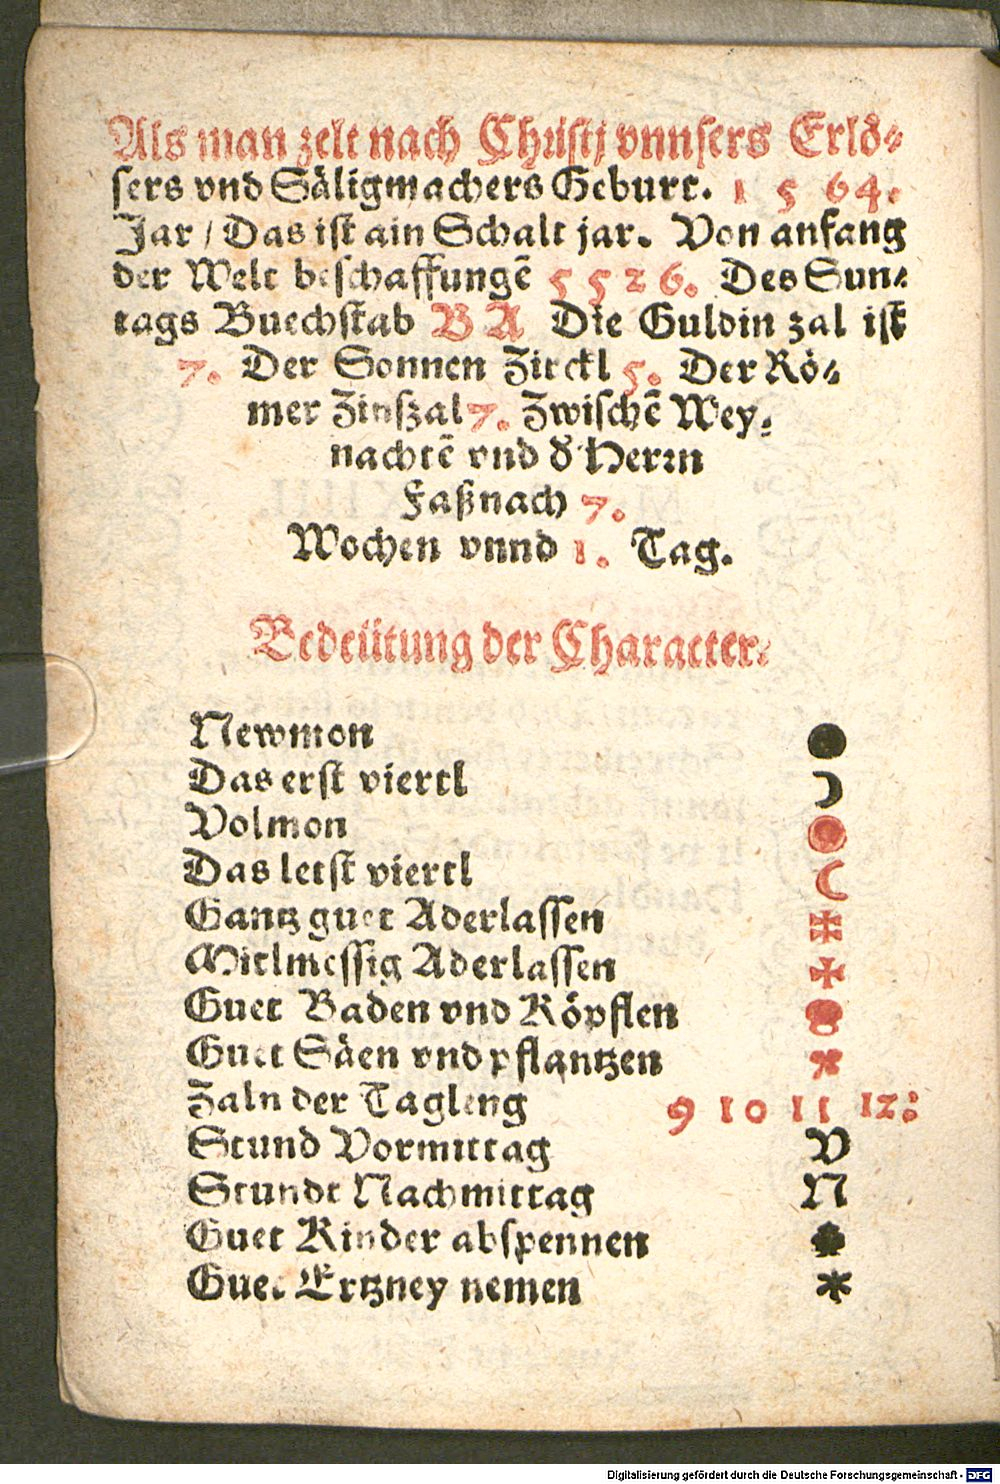 Als man zelt nach Christj vnnsers Erlö⸗
sers vnd Säligmachers Geburt. 1 5 64.
Jar / Das ist ain Schalt jar. Von anfang
der Welt beschaffungē 5 5 2 6. Des Sun⸗
tags Buechstab B A Die Guldin zal ist
7. Der Sonnen Zirckl 5. Der Rö⸗
mer Zinßzal 7. Zwischē Wey⸗
nachtē vnd d' Herrn
Faßnach 7.
Wochen vnnd 1. Tag.
Bedeütung der Character.
Newmon ●
Das erst viertl ☽
Volmon
Das letst viertl ☾
Gantz guet Aderlassen
Mitlmessig Aderlassen ✠
Guet Baden vnd Köpflen
Guet Säen vnd pflantzen
Zaln der Tagleng 9 10 11 12:
Stund Vormittag V
Stundt Nachmittag N
Guet Kinder abspennen
Guet Ertzney nemen *
Digitalisierung gefördert durch die Deutsche Forschungsgemeinschaft - DFG